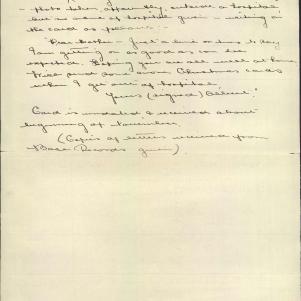 - photo taken apparently, outside a hospital
but no name of hospital given - writing on
the card as follows.
"Dear Mother - Just a line or two to day
I am getting on as good as can be
expected. Hoping you are all well at home
 and some more Christmas cards
when I get out of hospital.
Yours (signed) "
Card is undated & received about
beginning of November.
(Copies of letters received from
Base Records given)